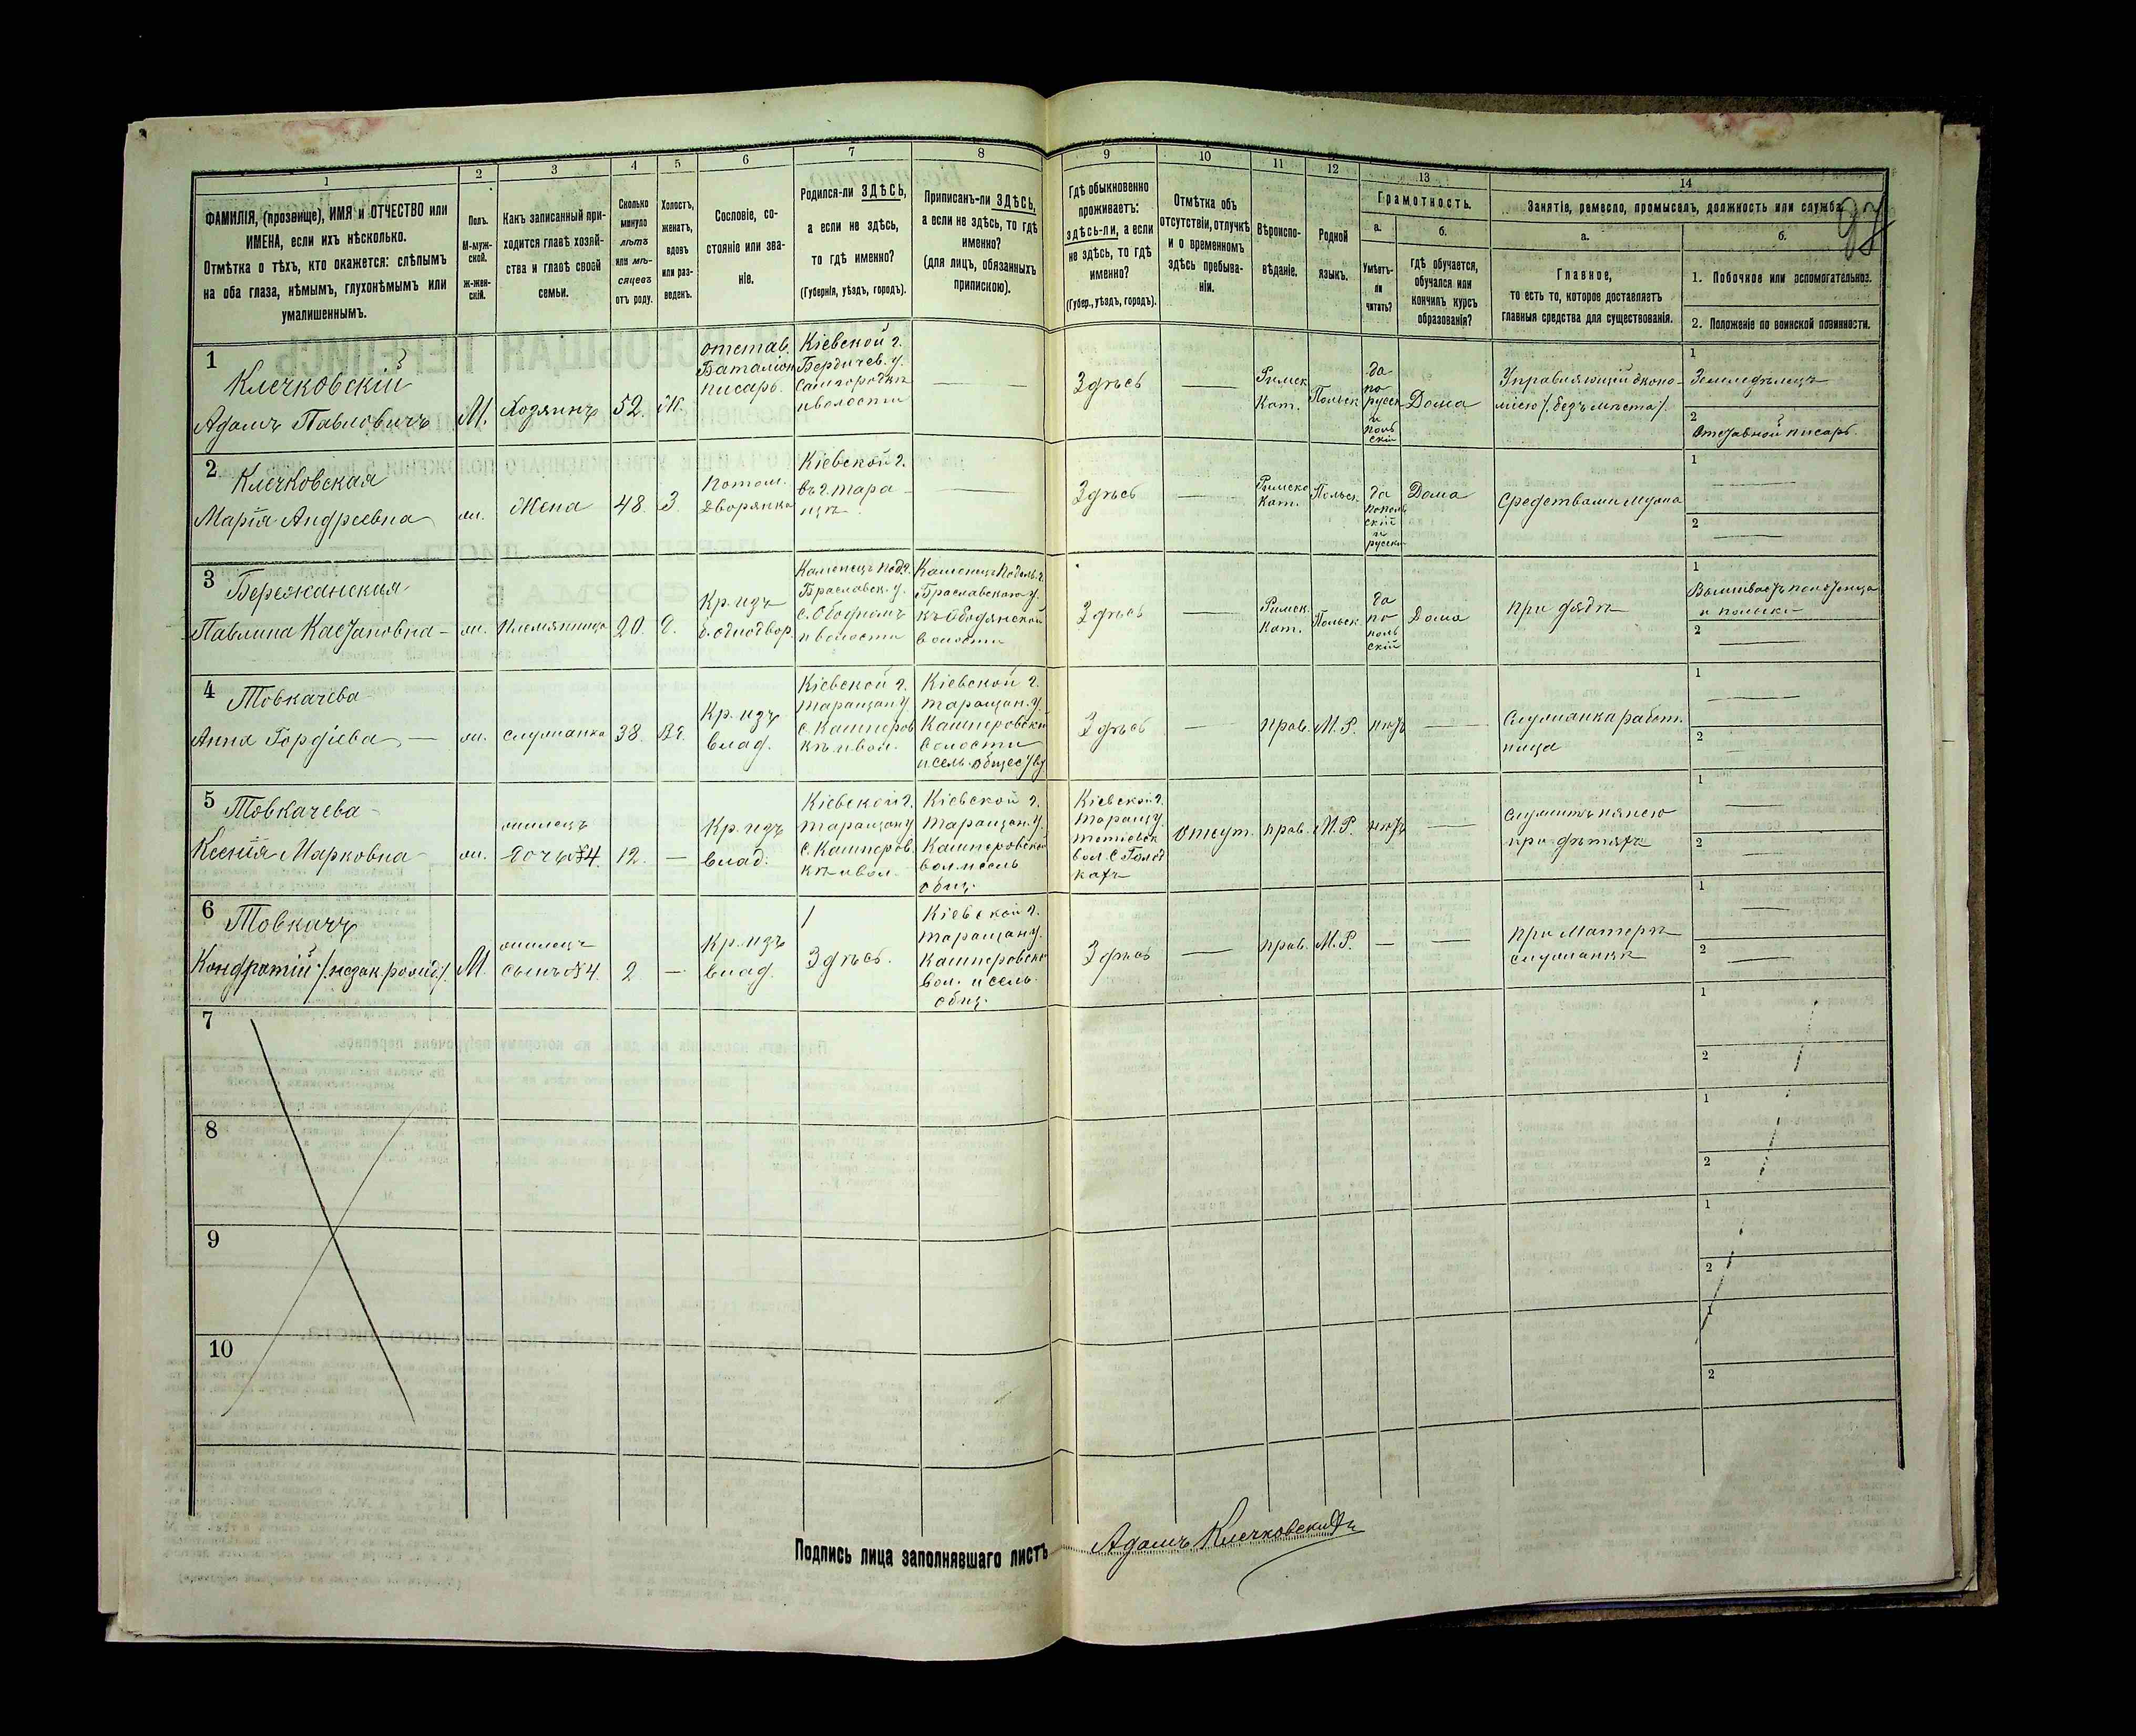 1
2
3
4
5
6
7
8
9
10
11
12
13
14
ФАМИЛІЯ, (прозвище), ИМЯ и ОТЧЕСТВО или
ИМЕНА, если ихъ нѣсколько.
Отмѣтка о тѣхъ, кто окажется: слѣпымъ
на оба глаза, нѣмымъ, глухонѣмымъ или
умалишеннымъ.
Полъ.
М-муж-
ской.
ж-жен-
скій.
Какъ записанный при-
ходится главѣ хозяй-
ства и главѣ своей
семьи.
Сколько
минуло
лѣтъ
или мѣ-
сяцевъ
отъ роду.
Холостъ,
женатъ,
вдовъ
или раз-
веденъ.
Сословіе, со-
стояніе или зва-
ніе.
Родился-ли ЗДѢСЬ,
а если не здѣсь,
то гдѣ именно?
(Губернія, уѣздъ, городъ).
Приписанъ-ли ЗДѢСЬ,
а если не здѣсь, то гдѣ
именно?
(для лицъ, обязанныхъ
припискою).
Гдѣ обыкновенно
проживаетъ:
здѣсь-ли, а если
не здѣсь, то гдѣ
именно?
(Губер., уѣздъ, городъ).
Отмѣтка объ
отсутствіи, отлучкѣ
и о временномъ
здѣсь пребыва-
ніи.
Вѣроиспо-
вѣданіе.
Родной
языкъ.
Грамотность.
а.
Умѣетъ-
ли
читать?
б.
гдѣ обучается,
обучался или
кончилъ курсъ
образованія?
Занятіе, ремесло, промыселъ, должность или служба.
а.
Главное,
то есть то, которое доставляетъ
главныя средства для существованія.
б.
1. Побочное или вспомогательное.
2. Положеніе по воинской повинности.
1
Клечковскій
Адамъ Павловичъ
М.
Хозяинъ
52.
Ж.
отстав.
Баталіон
писарь.
Кіевской г.
Бердичев. у.
и волости
Здѣсь
Римск
Кат.
Польск
да
по
русск
и
поль
скій
Дома
Управляющій эконо
міею /. безъ мѣста /.
1
Земледѣлецъ
2
Отставной писарь.
2
Клечковская
Марія Андреевна
ж.
Жена
48.
З.
потом.
дворянка
Кіевской г.
въ г. Тара
щѣ
Здѣсь
Римско
Кат.
Польск.
да
Дома
Средствами мужа
1
2
3
Бережанская
Павлина Каетановна
ж.
Племянница
20.
Кр. изъ
б. однодвор.
Каменецъ Под. г.
Браславск. у.
и волости
Каменецъ Подоль. г.
Браславскаго у.
къ Ободянской
волости
Здѣсь
Римск.
Кат.
Польск.
да
по
поль
скій
Дома
при дядѣ
1
2
4
Товкачева
Анна Гордіева
ж.
служанка
38.
Кр. изъ
влад.
Кіевской г.
Таращан. у.
с. Кашперов
кѣ и вол.
Кіевской г.
Таращан. у.
Кашперовской
волости
и сель. обществу
Здѣсь
прав.
М. Р.
нѣтъ
Служанка работ.
ница
1
2
5
Товкачева
Ксенія Марковна
ж.
дочь № 4.
12.
Кр. изъ
влад.
Кіевской г.
Таращан. у
с. Кашперов.
кѣ и вол.
Кіевской г.
Таращан. у
Кашперовской
вол. и сель
общ.
Кіевской г.
Таращ. у.
отсут.
прав.
М. Р.
нѣтъ
Служитъ нянею
при дѣтяхъ
1
2
6
Товкачъ
Кондратій /. незак. рожд. /.
М.
сынъ № 4.
2.
Кр. изъ
влад.
Здѣсь.
Кіевской г.
Таращан. у.
Кашперовско
вол. и сель.
общ.
Здѣсь
прав.
М. Р.
при матери
служанкѣ
1
2
7
1
2
8
1
2
9
1
2
10
1
2
Подпись лица заполнявшаго листъ
Адамъ Клечковскій